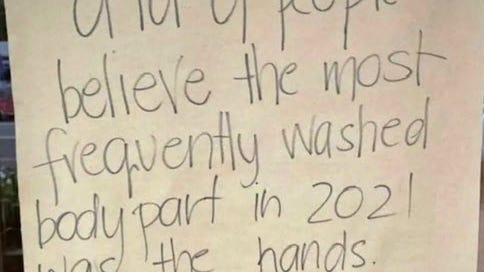 a lot of people
believe the most
frequently washed
body part in 2021
was the hands.